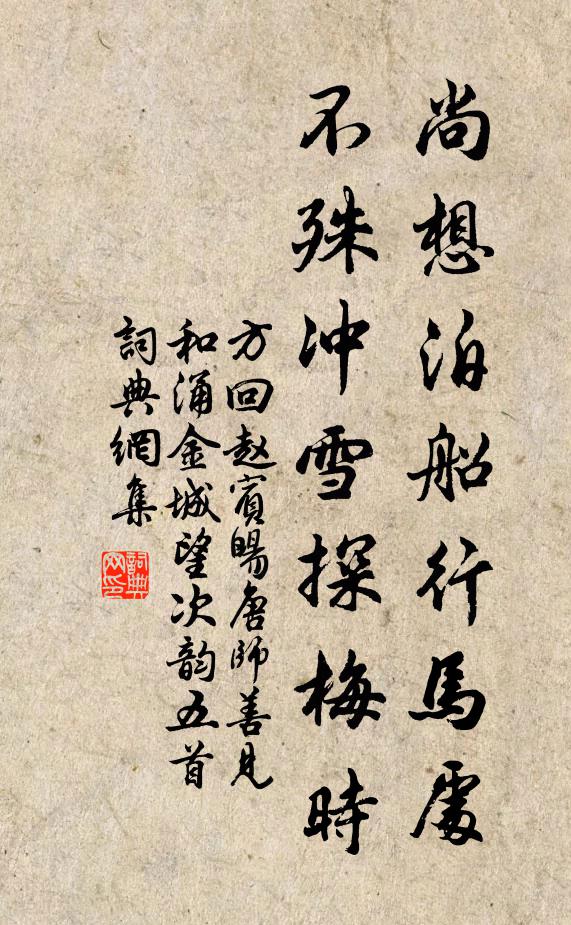 尚想泊船行馬處
不殊冲雪探梅時
方回赵賓暘唐師善見
和涌金城望次韵五首
詞典網集
詞典網印